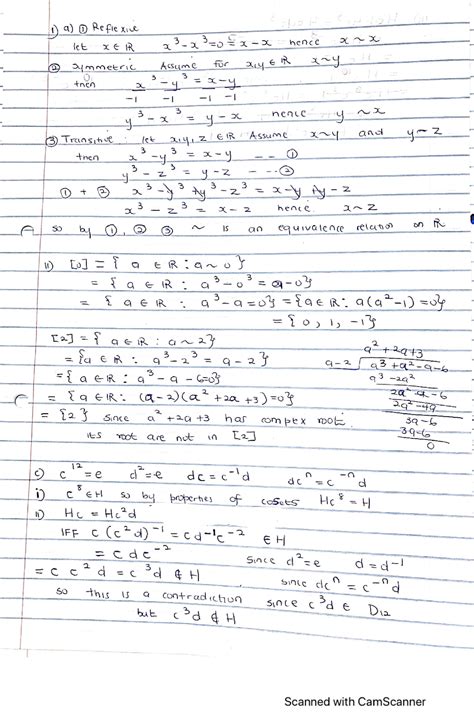 1) a) ① Reflexive
let x ∈ ℝ x³-x³=0=x-x hence x~x
② symmetric Assume for x,y ∈ ℝ x~y
then x³-y³ = x-y
-1 -1 -1 -1
y³-x³ = y-x hence y~x
③ Transitive let x,y,z ∈ ℝ Assume x~y and y~z
then x³-y³ = x-y --- ①
y³-z³ = y-z --- ②
① + ② x³-y³+y³-z³ = x-y+y-z
x³-z³ = x-z hence x~z
so by ①, ②, ③ ~ is an equivalence relation on ℝ
ii) [0] = { a ∈ ℝ : a~0 }
= { a ∈ ℝ : a³-0³ = a-0}
= { a ∈ ℝ : a³-a=0} = {a ∈ ℝ : a(a²-1)=0}
= {0, 1, -1}
[2] = { a ∈ ℝ : a~2}
= {a ∈ ℝ : a³-2³ = a-2}
= {a ∈ ℝ : a³-a-6=0}
= {a ∈ ℝ : (a-2)(a²+2a+3)=0}
= {2} since a²+2a+3 has complex root.
its root are not in [2]
a²+2a+3
a-2 a³+a²-a-6
a³-2a²
2a²-a-6
2a²-4a
3a-6
3a-6
0
c) c¹²=e d²=e dc=c⁻¹d dcⁿ=c⁻ⁿd
i) c⁸∈H so by properties of cosets Hc⁸=H
ii) Hc = Hc²d
IFF c(c²d)⁻¹ = cd⁻¹c⁻² ∈ H
= cdc⁻² since d²=e d=d⁻¹
= c c²d = c³d ∉ H since dcⁿ=c⁻ⁿd
so this is a contradiction since c³d ∈ D₁₂
but c³d ∉ H
Scanned with CamScanner